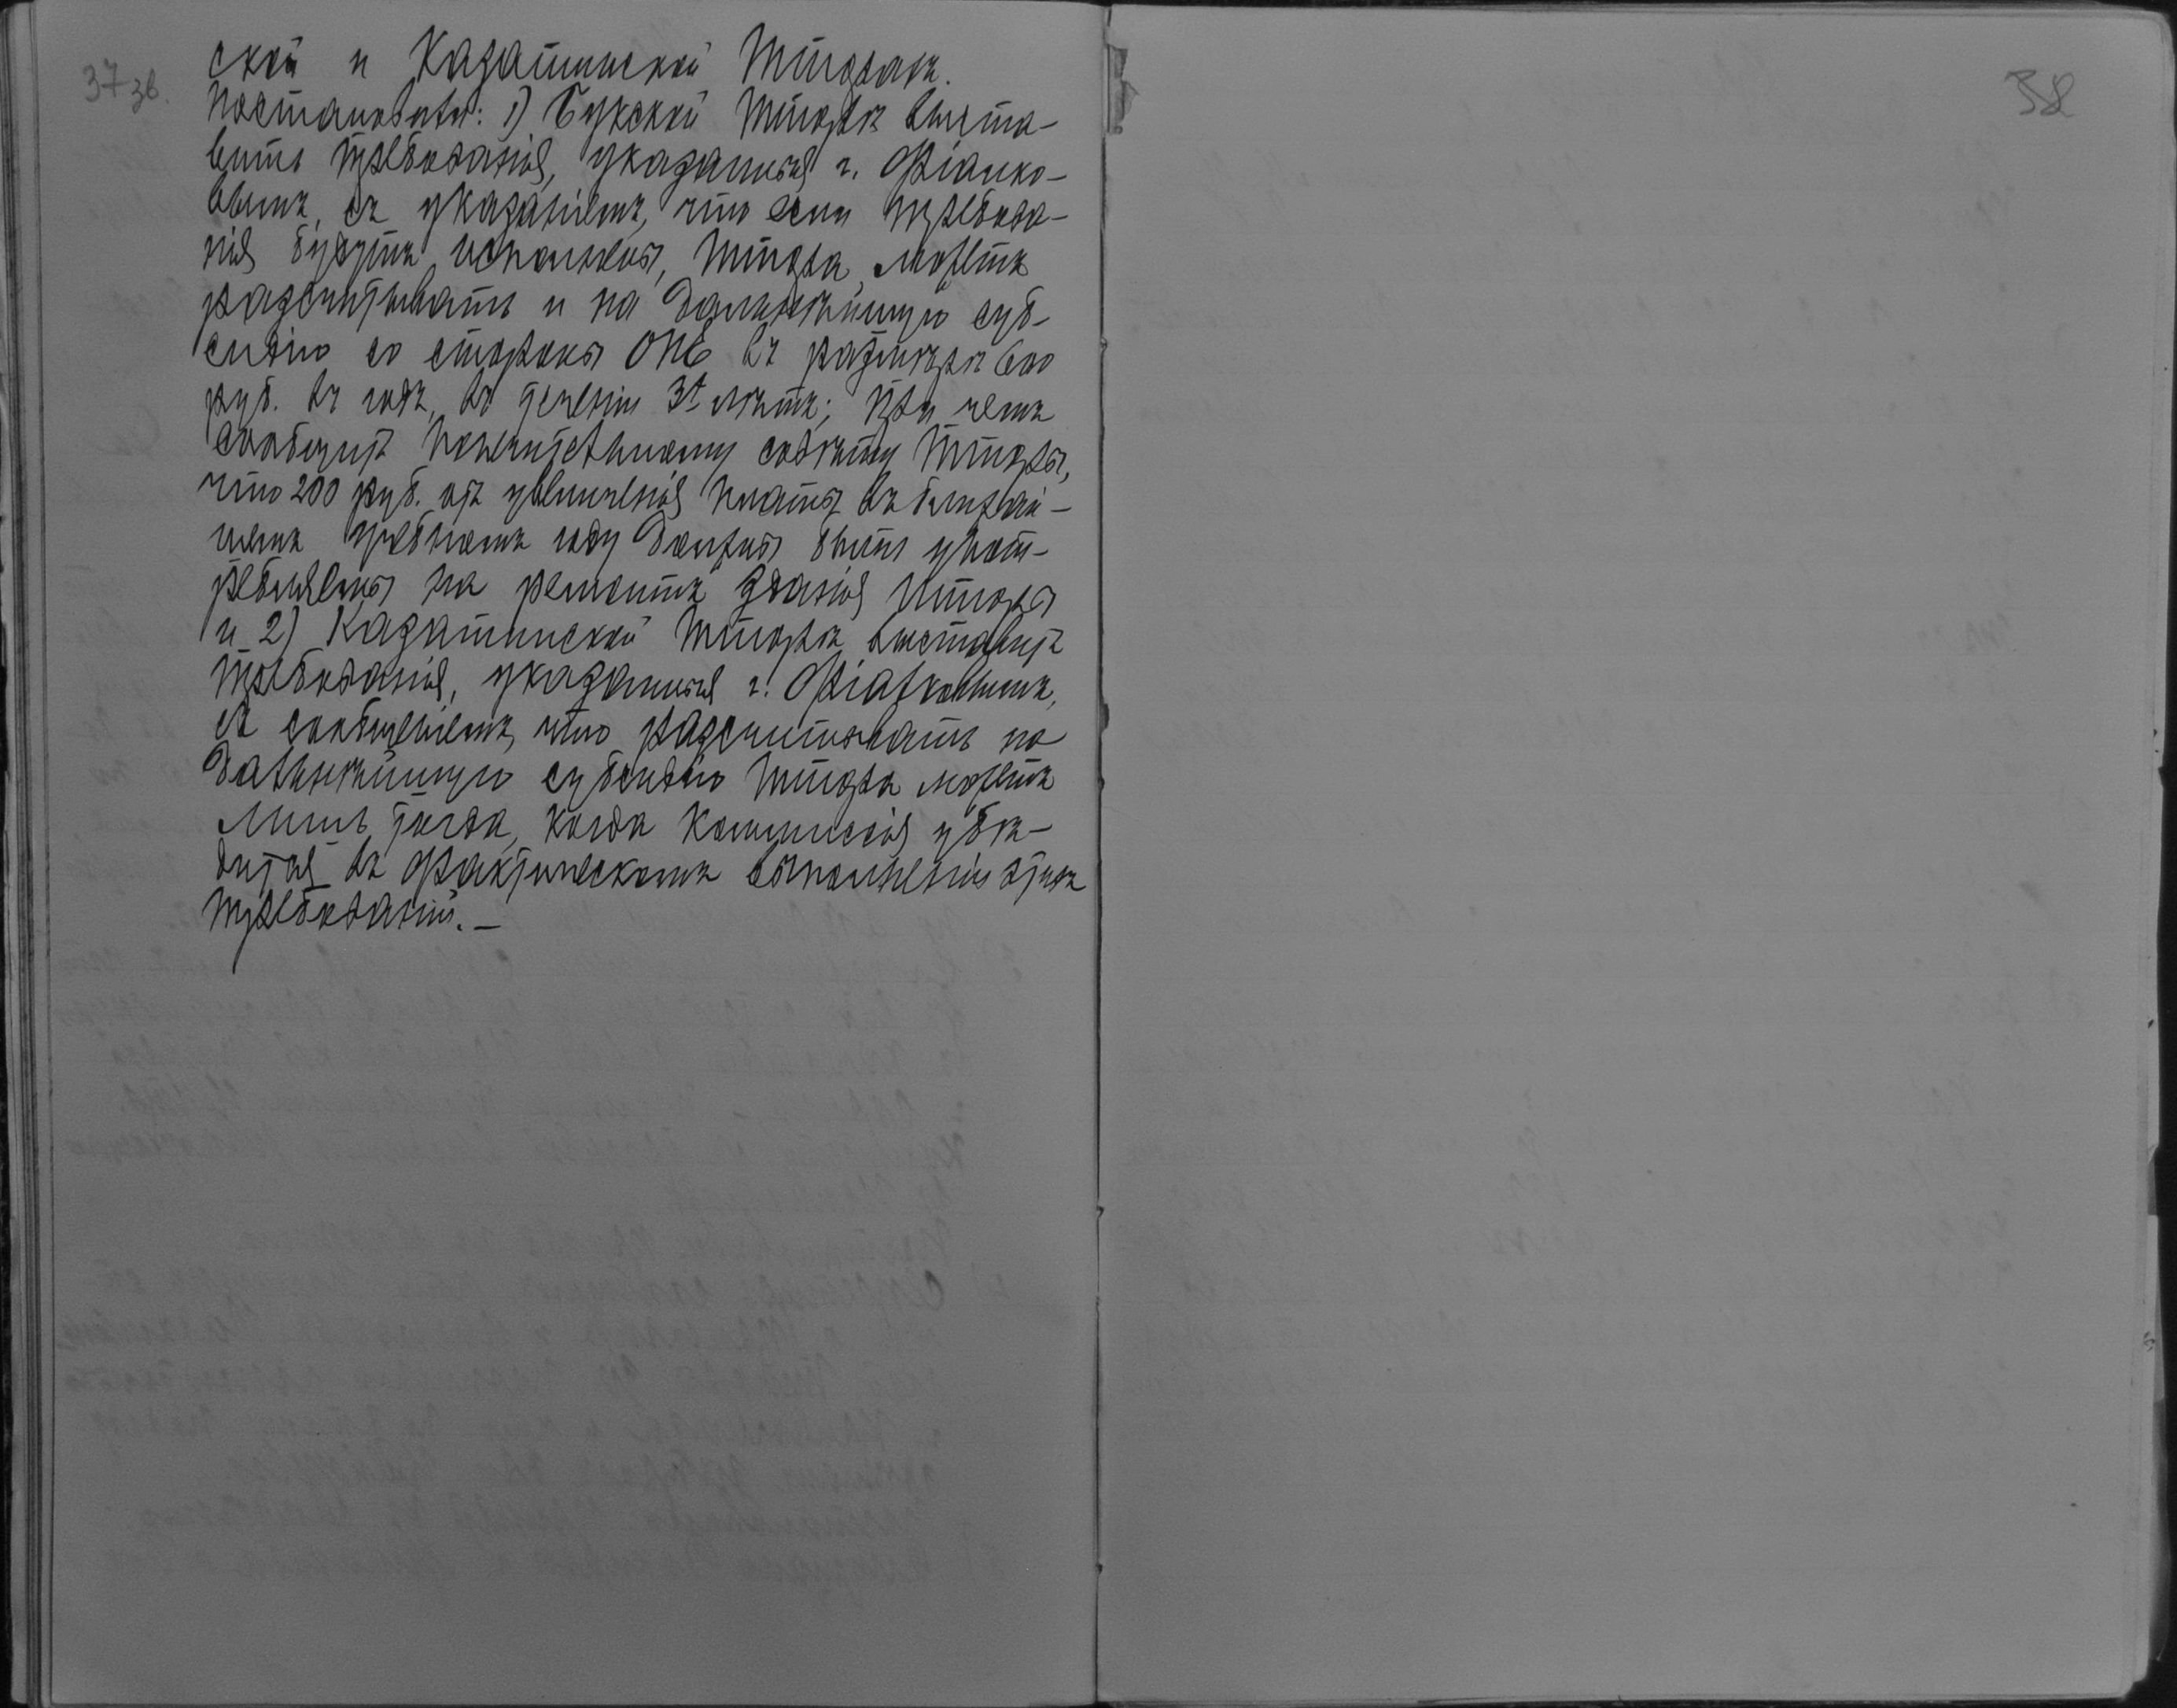 37 зв.
38
ской и Казатинской Т. Торахъ.
Постановили: 1) Букской Т. Торѣ выста-
вить требованія, указанныя г. Фіалко-
вымъ, съ указаніемъ, что если требова-
нія будутъ исполнены, Т. Тора можетъ
разсчитывать и на дальнѣйшую суб-
сидію со стороны ОПЕ въ размѣрѣ 600
руб. въ годъ, въ теченіи 3х лѣтъ; при чемъ
сообщить попечительному совѣту Т. Торы,
что 200 руб. отъ увеличенія платы въ ближай-
шемъ учебномъ году должны быть упот-
реблены на ремонтъ зданія Т. Торы
и 2) Казатинской Т. Торѣ выставить
требованія, указанныя г. Фіалковымъ,
съ сообщеніемъ, что разсчитывать на
дальнѣйшую субсидію Т. Тора можетъ
лишь тогда, когда Коммиссія убѣ-
дится въ фактическомъ выполненіи этихъ
требованій. —